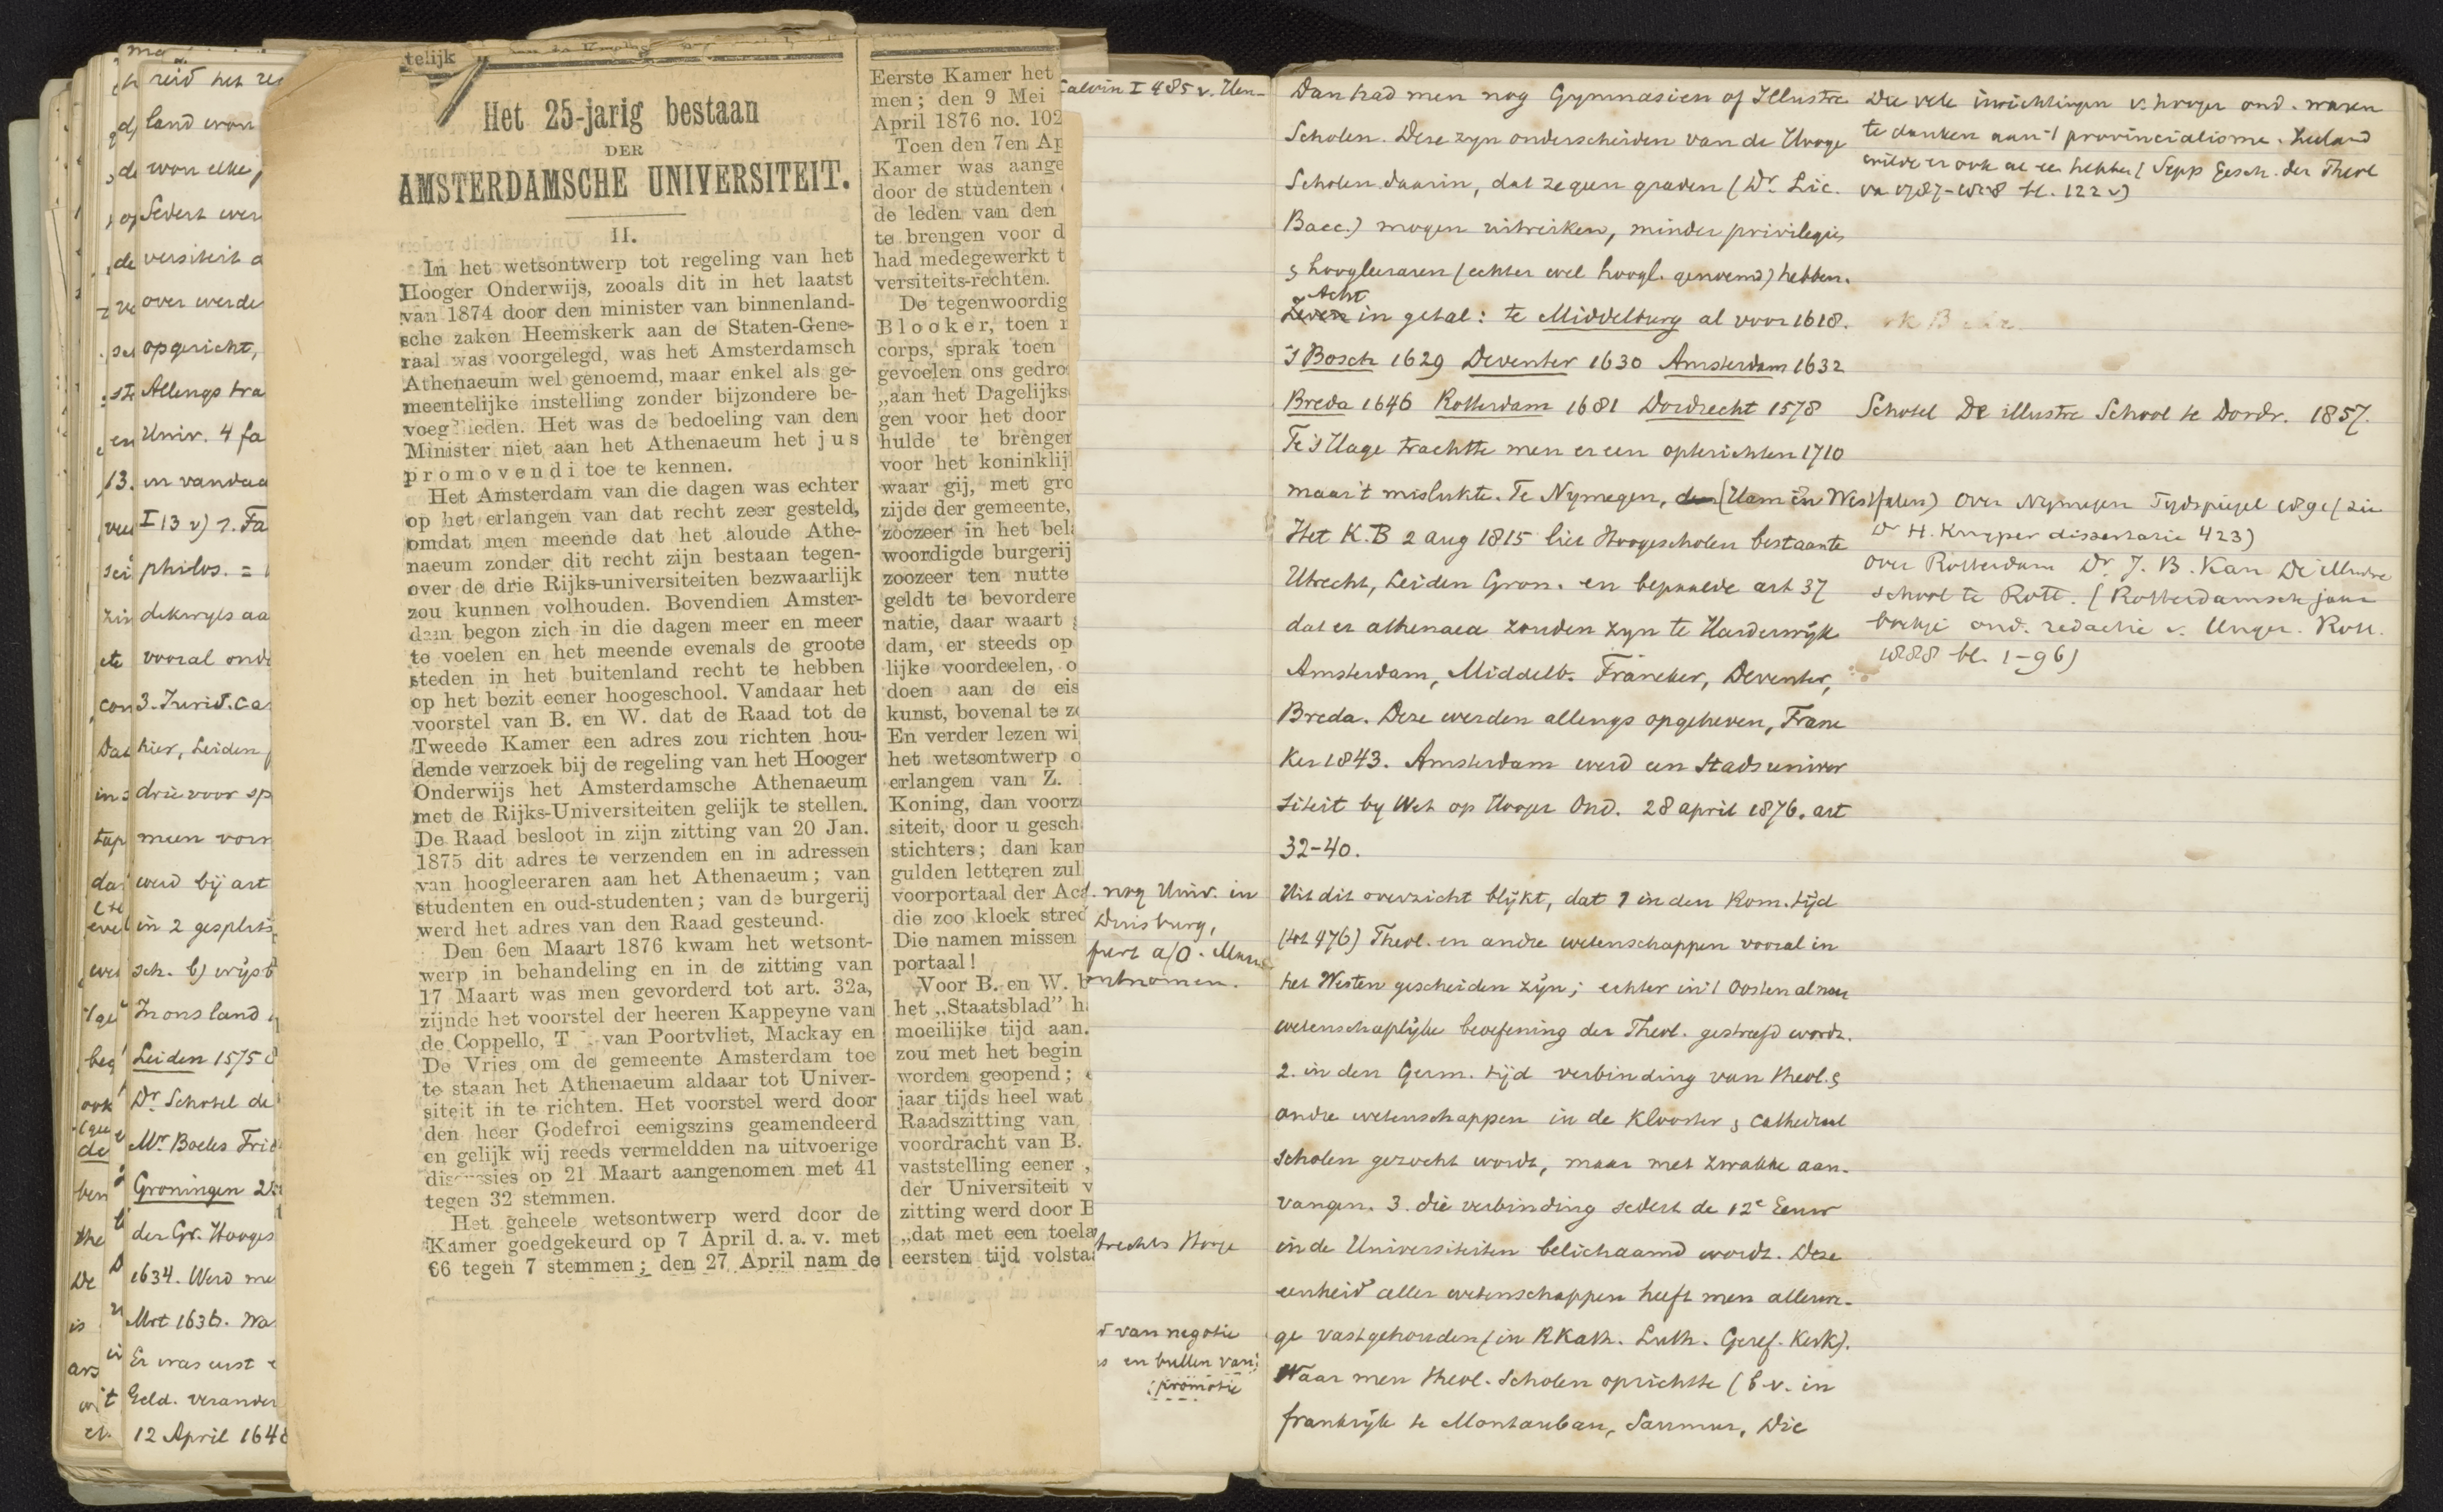 telijk
Het 25-jarig bestaan
DER
AMSTERDAMSCHE UNIVERSITEIT.
II.
In het wetsontwerp tot regeling van het
Hooger Onderwijs, zooals dit in het laatst
van 1874 door den minister van binnenland-
sche zaken Heemskerk aan de Staten-Gene-
raal was voorgelegd, was het Amsterdamsch
Athenaeum wel genoemd, maar enkel als ge-
meentelijke instelling zonder bijzondere be-
voeg heden. Het was de bedoeling van den
Minister niet aan het Athenaeum het jus
promovendi toe te kennen.
Het Amsterdam van die dagen was echter
op het erlangen van dat recht zeer gesteld,
omdat men meende dat het aloude Athe-
naeum zonder dit recht zijn bestaan tegen-
over de drie Rijks-universiteiten bezwaarlijk
zou kunnen volhouden. Bovendien Amster-
dam begon zich in die dagen meer en meer
te voelen en het meende evenals de groote
steden in het buitenland recht te hebben
op het bezit eener hoogeschool. Vandaar het
voorstel van B. en W. dat de Raad tot de
Tweede Kamer een adres zou richten hou-
dende verzoek bij de regeling van het Hooger
Onderwijs het Amsterdamsche Athenaeum
met de Rijks-Universiteiten gelijk te stellen.
De Raad besloot in zijn zitting van 20 Jan.
1875 dit adres te verzenden en in adressen
van hoogleeraren aan het Athenaeum; van
studenten en oud-studenten; van de burgerij
werd het adres van den Raad gesteund.
Den 6en Maart 1876 kwam het wetsont-
werp in behandeling en in de zitting van
17 Maart was men gevorderd tot art. 32a,
zijnde het voorstel der heeren Kappeyne van
de Coppello, T van Poortvliet, Mackay en
De Vries om de gemeente Amsterdam toe
te staan het Athenaeum aldaar tot Univer-
siteit in te richten. Het voorstel werd door
den heer Godefroi eenigszins geamendeerd
en gelijk wij reeds vermeldden na uitvoerige
discussies op 21 Maart aangenomen met 41
tegen 32 stemmen.
Het geheele wetsontwerp werd door de
Kamer goedgekeurd op 7 April d. a. v. met
66 tegen 7 stemmen; den 27 April nam de
Eerste Kamer het
men; den 9 Mei
April 1876 no. 102
Toen den 7en Ap
Kamer was aange
door de studenten
de leden van den
te brengen voor d
had medegewerkt t
versiteits-rechten.
De tegenwoordig
Blooker, toen
corps, sprak toen
gevoelen ons gedro
„aan het Dagelijks
gen voor het door
hulde te brenger
voor het koninklij
waar gij, met gro
zijde der gemeente,
zoozeer in het bela
woordigde burgerij
zoozeer ten nutte
geldt te bevordere
natie, daar waart
dam, er steeds op
lijke voordeelen, o
doen aan de eis
kunst, bovenal te z
En verder lezen wi
het wetsontwerp o
erlangen van Z.
Koning, dan voorz
siteit, door u gesch
stichters; dan kan
gulden letteren zul
voorportaal der Aca
die zoo kloek stred
Die namen missen
portaal!
Voor B. en W. b
het „Staatsblad" h
moeilijke tijd aan.
zou met het begin
worden geopend;
jaar tijds heel wat
Raadszitting van
voordracht van B.
vaststelling eener ,
der Universiteit v
zitting werd door B
„dat met een toela
eersten tijd volsta
reid het
land
won elke
Sedert
versiteit
over werde
opgericht,
Allengs tra
Univ. 4 fa
en vandaa
I 13 v) 1. Fa
philos. =
vooral onde
3. Jurid. ca
hier, Leiden
drie voor sp
meen vorm
werd bij art
in 2 gesplits
In ons land
Leiden 1575
Dr. Schotel de
Mr Boeles
Groningen
der Gr. Hooges
1634. Werd me
Mrt 1636. Wa
Er was eerst
Geld. verander
12 April 1648
Calvin I 485 v.
nog Univ. in
Duisburg,
a/O.
ontnomen.
trechts Hooge
van negotie
en bullen van
promotie
Dan had men nog Gymnasien of Illustre
Scholen. Deze zyn onderscheiden van de Hooge
Scholen daarin, dat ze geen graden (Dr. Lic.
Bacc.) mogen uitreiken, minder privilegies
& hoogleeraren (echter wel hoogl. genoemd) hebben.
Acht
Zeven in getal: te Middelburg al voor 1618.
's Bosch 1629 Deventer 1630 Amsterdam 1632
Breda 1646 Rotterdam 1681 Dordrecht 1578
Te 's Hage trachtte men er een opterichten 1710
maar 't mislukte. Te Nymegen, (Ham in Westfalen)
Het K.B 2 aug 1815 liet Hoogescholen bestaan te
Utrecht, Leiden Gron. en bepaalde art 37
dat er athenaea zouden zyn te Harderwijk
Amsterdam, Middelb. Franeker, Deventer,
Breda. Deze werden allengs opgeheven, Frane
ker 1843. Amsterdam werd een Stads univer
siteit by Wet op Hooger Ond. 28 april 1876. art
32-40.
Uit dit overzicht blijkt, dat 1 in den Rom. tijd
(tot 476) Theol. en andre wetenschappen vooral in
het Westen gescheiden zijn; echter in 't Oosten al naar
wetenschaplijke beoefening der Theol. gestreefd wordt.
2. in den Germ. tijd verbinding van theol. &
andre wetenschappen in de Klooster & Cathedraal
scholen gezocht wordt, maar met zwakke aan-
vangen. 3. die verbinding sedert de 12e Eeuw
in de Universiteiten belichaamd wordt. Deze
eenheid aller wetenschappen heeft men allerwe-
ge vastgehouden (in R Kath. Luth. Geref. Kerk).
Waar men theol. Scholen oprichtte (b.v. in
frankrijk te Montauban, Saumur, Die
Die vele inrichtingen v. hooger ond. waren
te danken aan 't provincialisme. Zeeland
wilde er ook al een hebben (Sepp Gesch. der Theol
van 1787-1858 bl. 122 v)
Schotel De illustre School te Dordr. 1857.
Over Nymegen Tydspiegel (zie
Dr H. Kuyper dissertatie 423)
over Rotterdam Dr J. B. Kan De illustre
school te Rott. (Rotterdamsch jaar
boekje ond. redactie v. Unger. Rott.
1888 bl. 1-96)